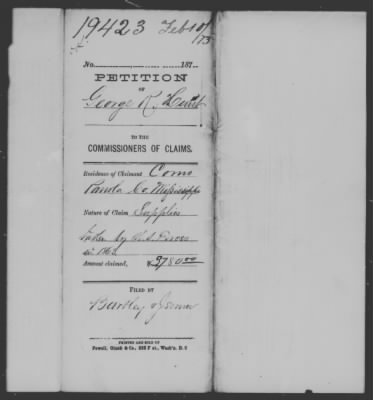 19423 Feb 10/73
No. 187
PETITION
OF
George R.
TO THE
COMMISSIONERS OF CLAIMS.
Residence of Claimant Como
Panola Co. Mississippi
Nature of Claim Supplies
taken by U.S. Forces
in 1863
Amount claimed, $9780.00
FILED BY
Bartley
PRINTED AND SOLD BY
Powell, Ginck & Co., 632 F st., Wash'n. D. C